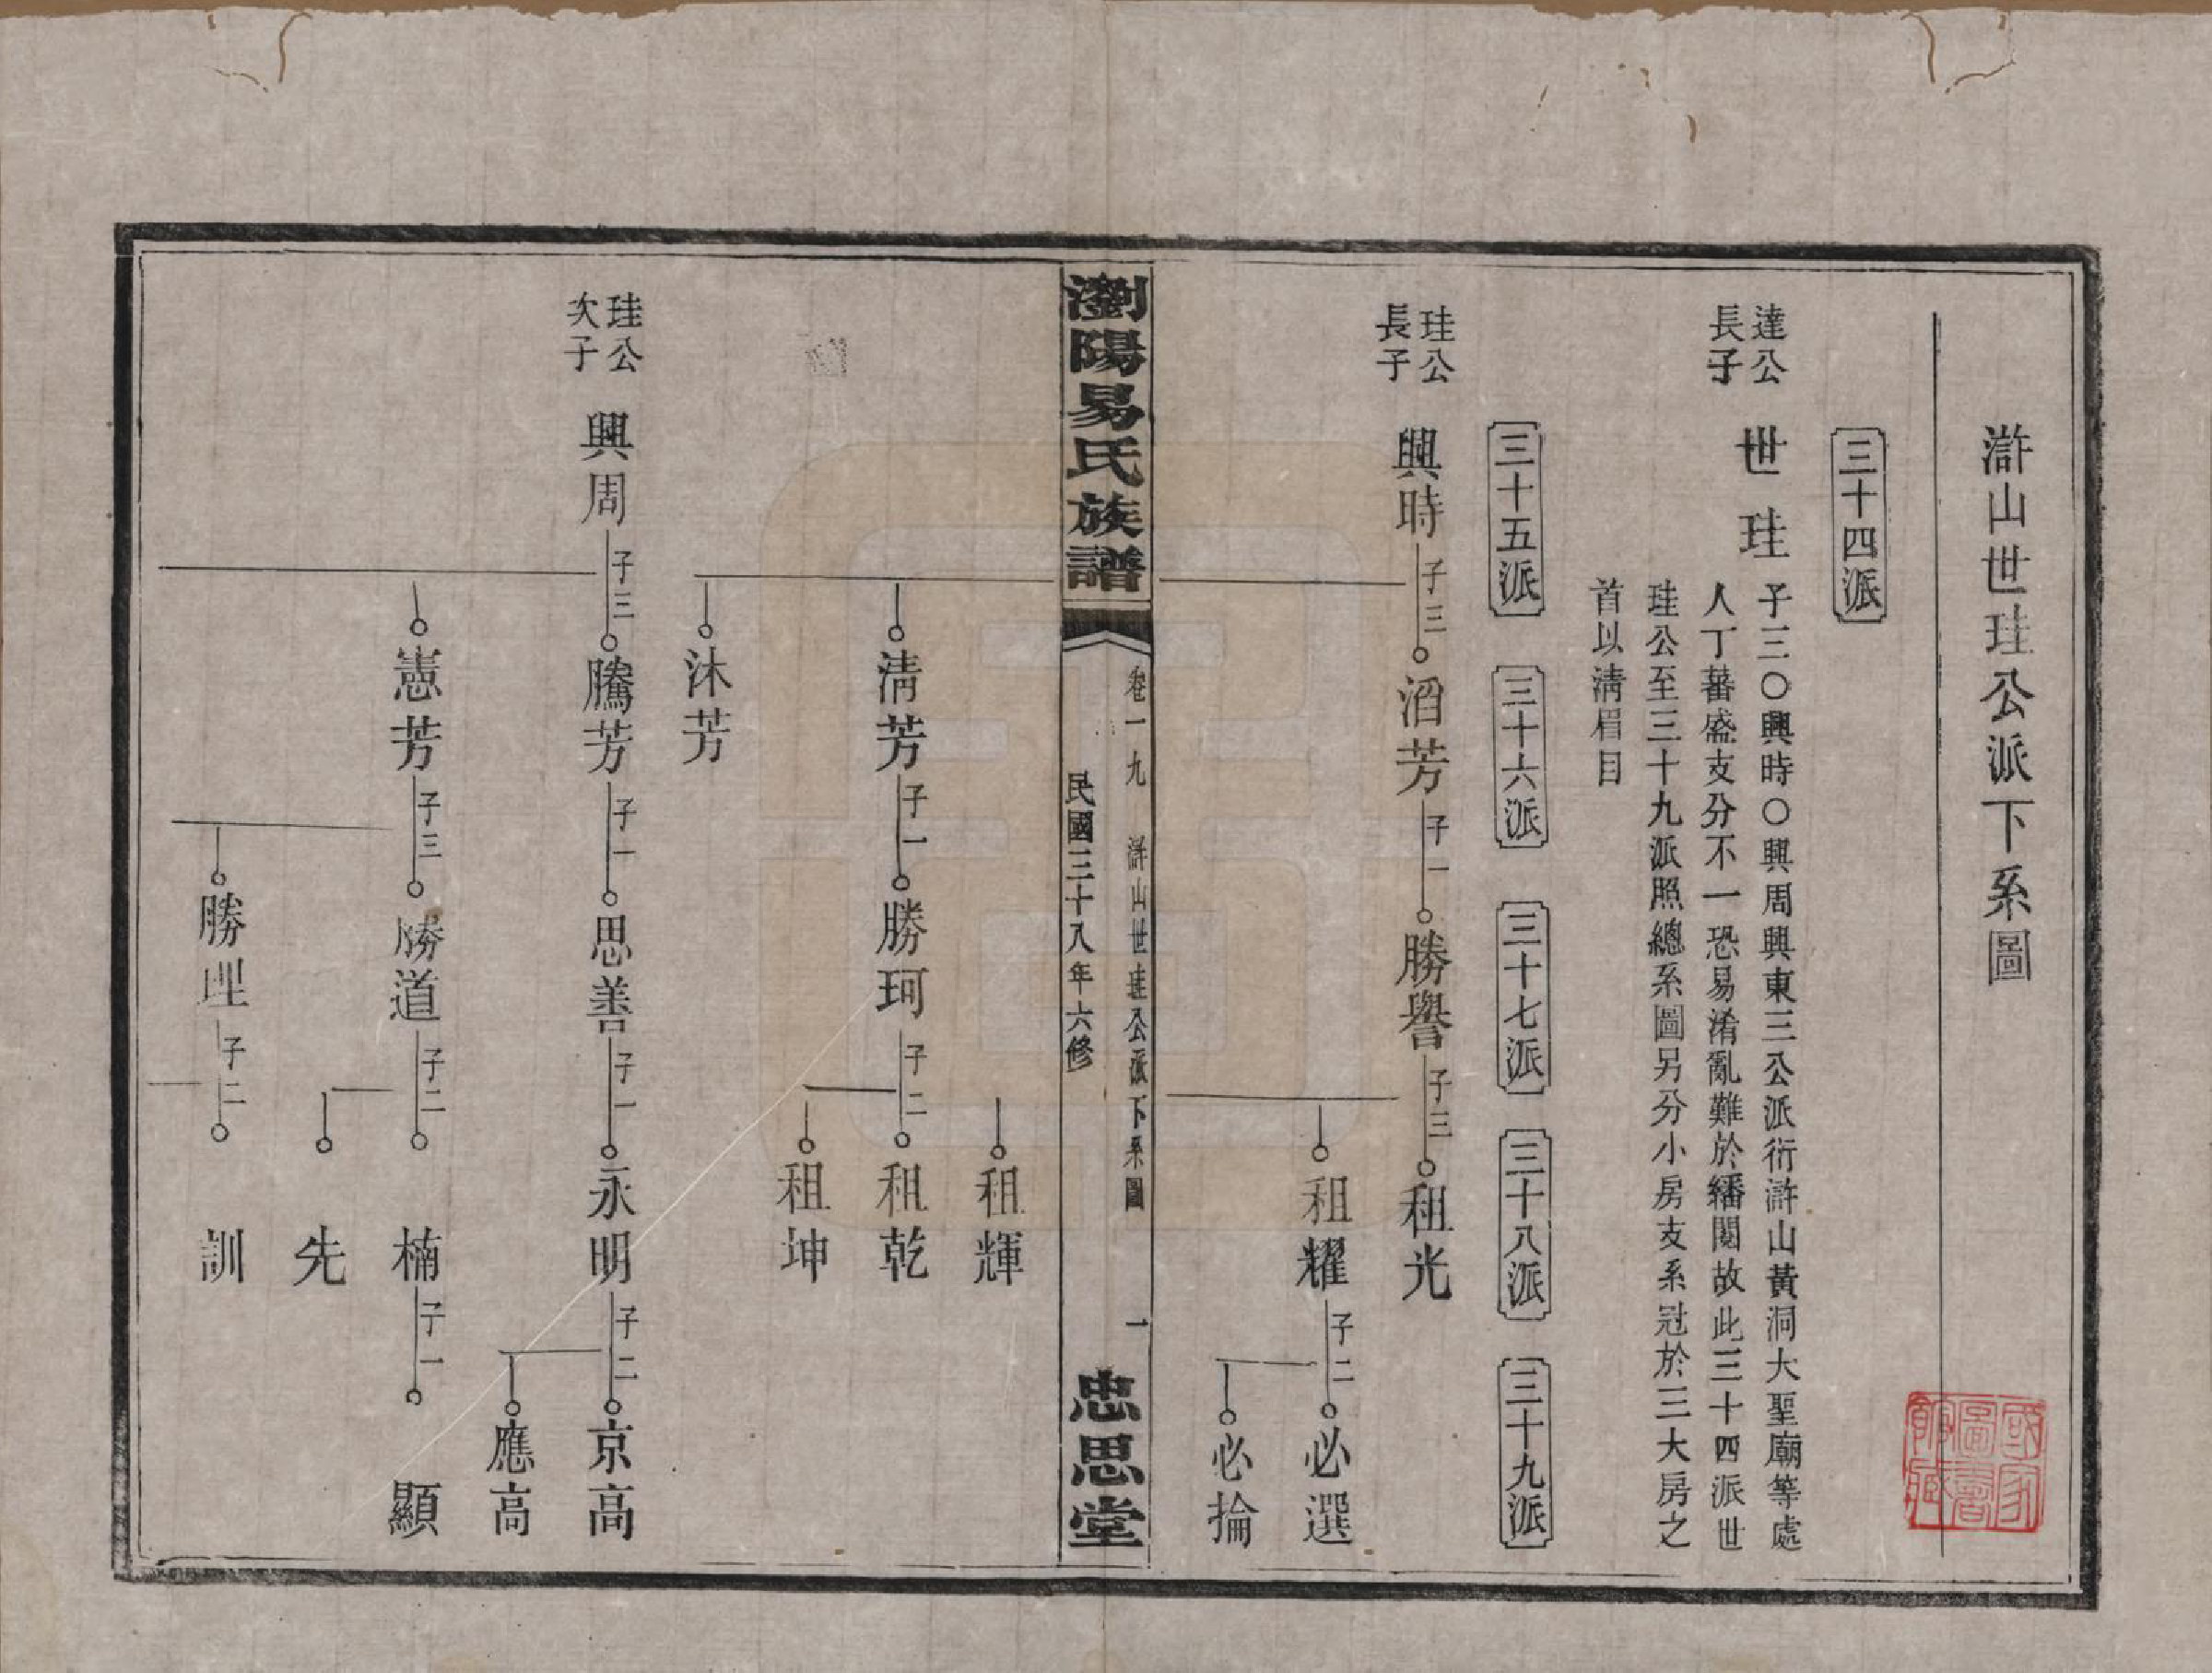 滸山世珪公派下系圖
三十四派
達公
長子
世珪
子三〇興時〇興周興東三公派衍滸山黃洞大聖廟等處
人丁蕃盛支分不一恐易淆亂難於繙閱故此三十四派世
珪公至三十九派照總系圖另分小房支系冠於三大房之
首以清眉目
三十五派
三十六派
三十七派
三十八派
三十九派
珪公
長子
興時 子三 滔芳 子一 勝譽 子三 租光
租耀 子二 必選
必掄
瀏陽易氏族譜
卷一九 滸山世珪公派下系圖 一
民國三十八年六修
忠思堂
租輝
清芳 子一 勝珂 子二 租乾
租坤
沐芳
珪公
次子
興周 子三 騰芳 子一 思善 子一 永明 子二 京高
應高
憲芳 子三 勝道 子二 楠 子一 顯
先
勝理 子二 訓
國家圖書館藏